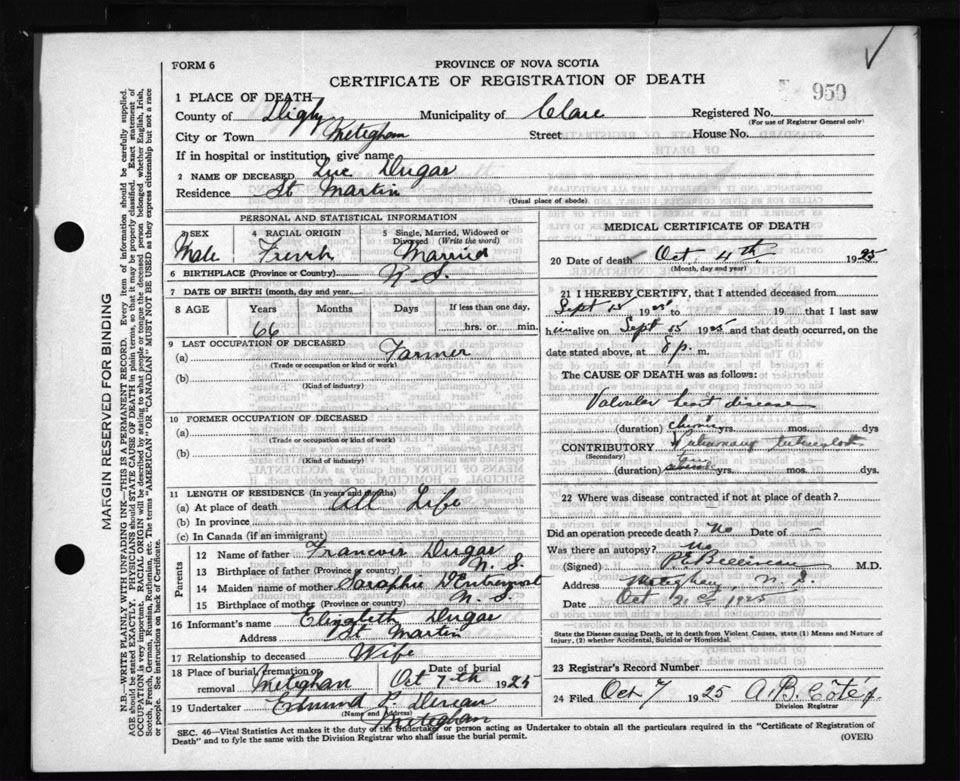 FORM 6
PROVINCE OF NOVA SCOTIA
CERTIFICATE OF REGISTRATION OF DEATH
959
1 PLACE OF DEATH
County of Digby Municipality of Clare Registered No.
(For use of Registrar General only)
City or Town Meteghan Street House No.
If in hospital or institution, give name
2 NAME OF DECEASED Luc Dugas
Residence St Martin
(Usual place of abode)
PERSONAL AND STATISTICAL INFORMATION
3 SEX 4 RACIAL ORIGIN 5 Single, Married, Widowed or Divorced (Write the word)
Male French Married
6 BIRTHPLACE (Province or Country) N. S.
7 DATE OF BIRTH (month, day and year)
8 AGE Years Months Days If less than one day,
66 hrs. or min.
9 LAST OCCUPATION OF DECEASED
(a) Farmer
(Trade or occupation or kind or work)
(b)
(Kind of industry)
10 FORMER OCCUPATION OF DECEASED
(a)
(Trade or occupation or kind of work)
(b)
(Kind of industry)
11 LENGTH OF RESIDENCE (In years and months)
(a) At place of death All Life
(b) In province
(c) In Canada (if an immigrant)
Parents
12 Name of father Francois Dugas
13 Birthplace of father (Province or country) N. S.
14 Maiden name of mother Saraphie D'Entremont
15 Birthplace of mother (Province or country) N. S.
16 Informant's name Elizabeth Dugas
Address St Martin
17 Relationship to deceased Wife
18 Place of burial, cremation or removal Meteghan Date of burial Oct 7th 1925
19 Undertaker Edmund P.
(Name and Address)
Meteghan
MEDICAL CERTIFICATE OF DEATH
20 Date of death Oct. 4th 1925
(Month, day and year)
21 I HEREBY CERTIFY, that I attended deceased from
Sept 19 to 19 that I last saw
him alive on Sept 15 1925 and that death occurred, on the
date stated above, at 8 p. m.
The CAUSE OF DEATH was as follows:
Valvular heart disease
(duration) yrs. mos. dys
CONTRIBUTORY Pulmonary
(Secondary)
(duration) yrs. mos. dys.
22 Where was disease contracted if not at place of death?
Did an operation precede death? No Date of –
Was there an autopsy? No
(Signed) M.D.
Address Meteghan, N. S.
Date Oct 1925
State the Disease causing Death, or in death from Violent Causes, state (1) Means and Nature of
Injury, (2) whether Accidental, Suicidal or Homicidal.
23 Registrar's Record Number
24 Filed Oct 7 1925 A. B. Coté
Division Registrar
SEC. 46—Vital Statistics Act makes it the duty of the Undertaker or person acting as Undertaker to obtain all the particulars required in the "Certificate of Registration of
Death" and to fyle the same with the Division Registrar who shall issue the burial permit. (OVER)
MARGIN RESERVED FOR BINDING
N.B.—WRITE PLAINLY WITH UNFADING INK—THIS IS A PERMANENT RECORD. Every item of information should be carefully supplied.
AGE should be stated EXACTLY. PHYSICIANS should STATE CAUSE OF DEATH in plain terms, so that it may be properly classified. Exact statement of
OCCUPATION is very important. RACIAL ORIGIN will be described by stating to what people or tongue the deceased person belonged whether English, Irish,
Scotch, French, German, Russian, Ruthenian, etc. The terms "AMERICAN" OR "CANADIAN" MUST NOT BE USED as they express citizenship but not a race
or people. See instructions on back of Certificate.